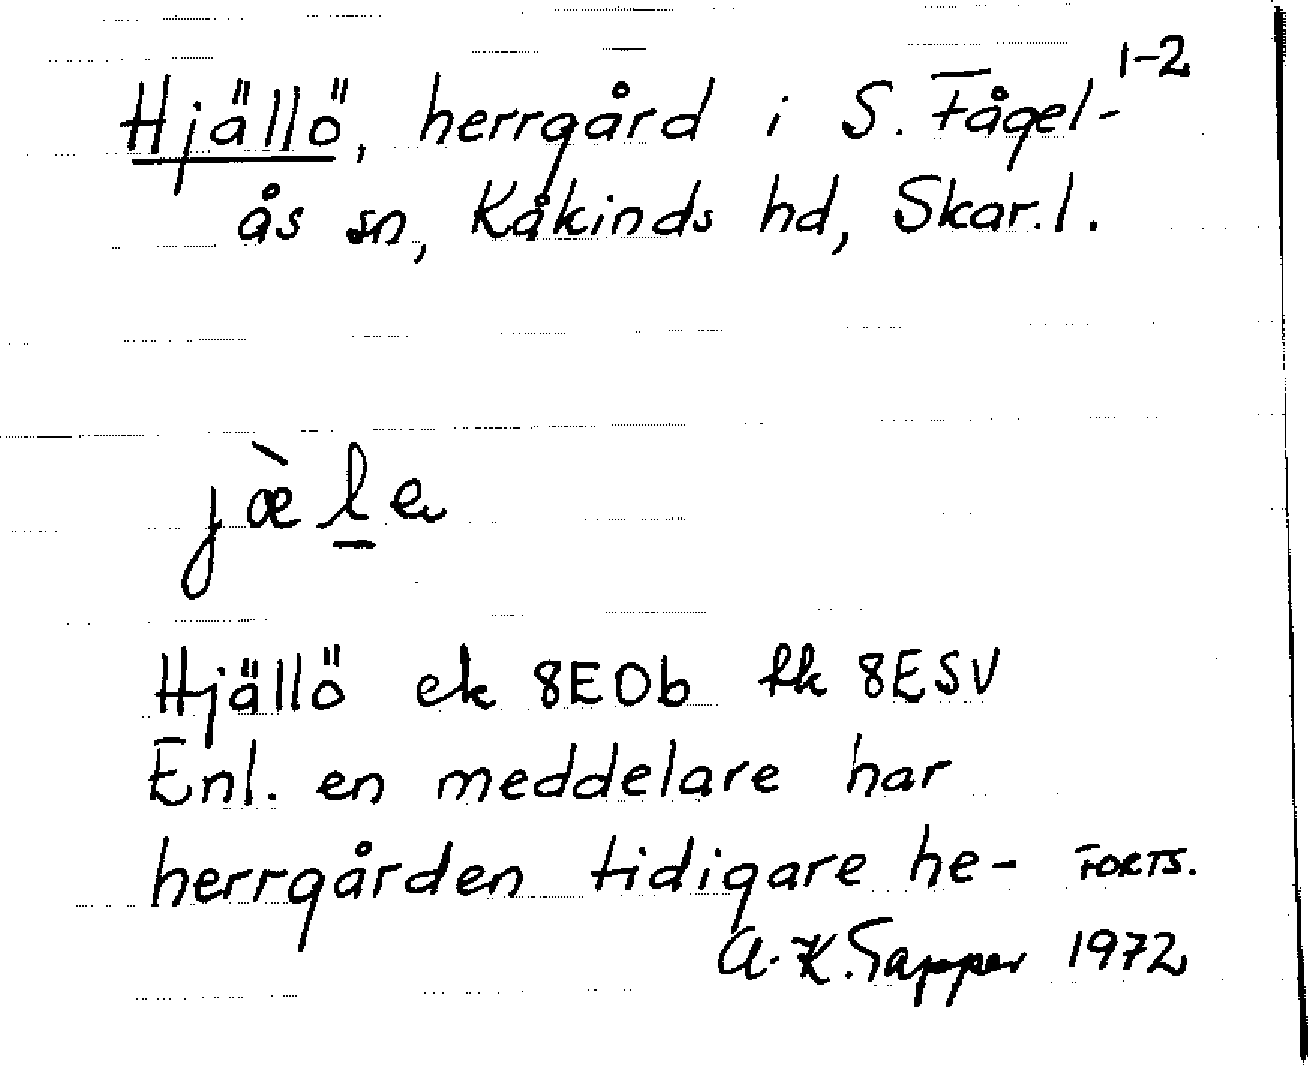 1-2
Hjällö, herrgård i S. Fågel-
ås sn, Kåkinds hd, Skar.l.
jæ̀l̲e
Hjällö ek 8EOb fk 8ESV
Enl. en meddelare har
herrgården tidigare he- FORTS.
A.K. Sapper 1972